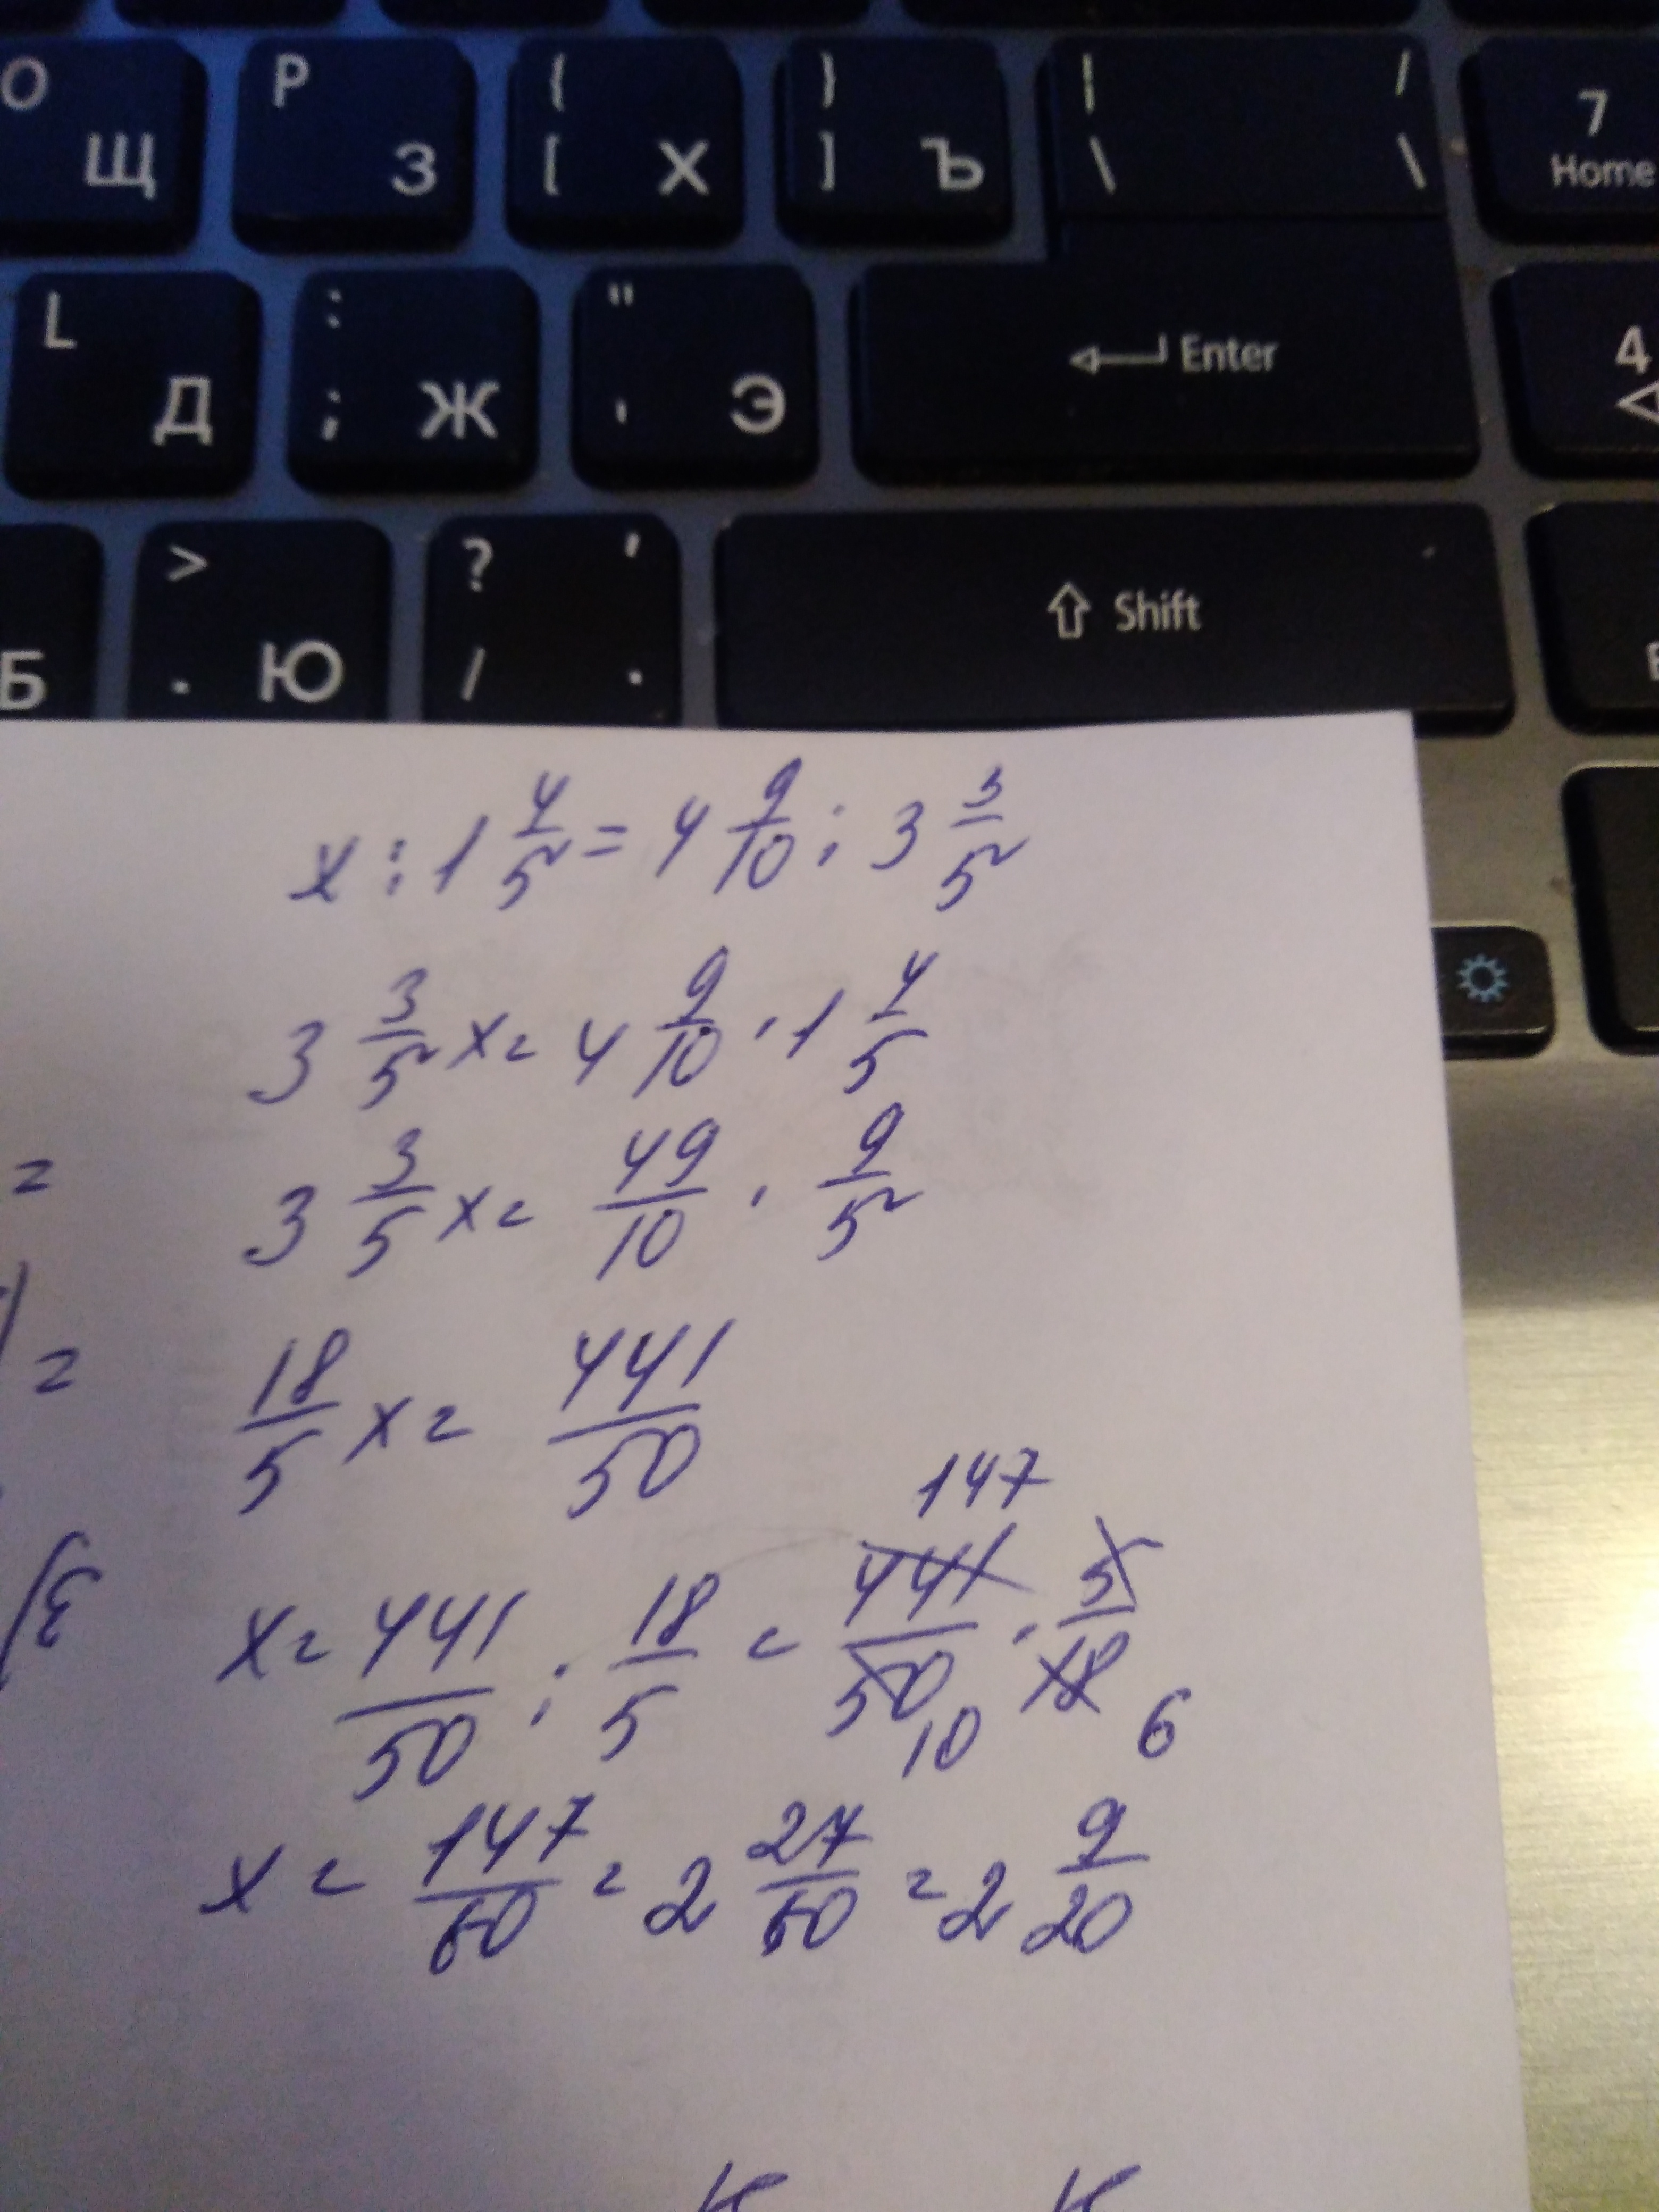 O Щ P З { [ Х } ] Ъ | \ / \ 7 Home
L Д : ; Ж " ' Э Enter 4
Б > . Ю ? / ' . Shift
x : 1 4/5 = 4 9/10 : 3 3/5
3 3/5 x = 4 9/10 · 1 4/5
=
3 3/5 x = 49/10 · 9/5
=
18/5 x = 441/50
147
x = 441/50 : 18/5 = 441/50 · 5/18
10 6
x = 147/60 = 2 27/60 = 2 9/20